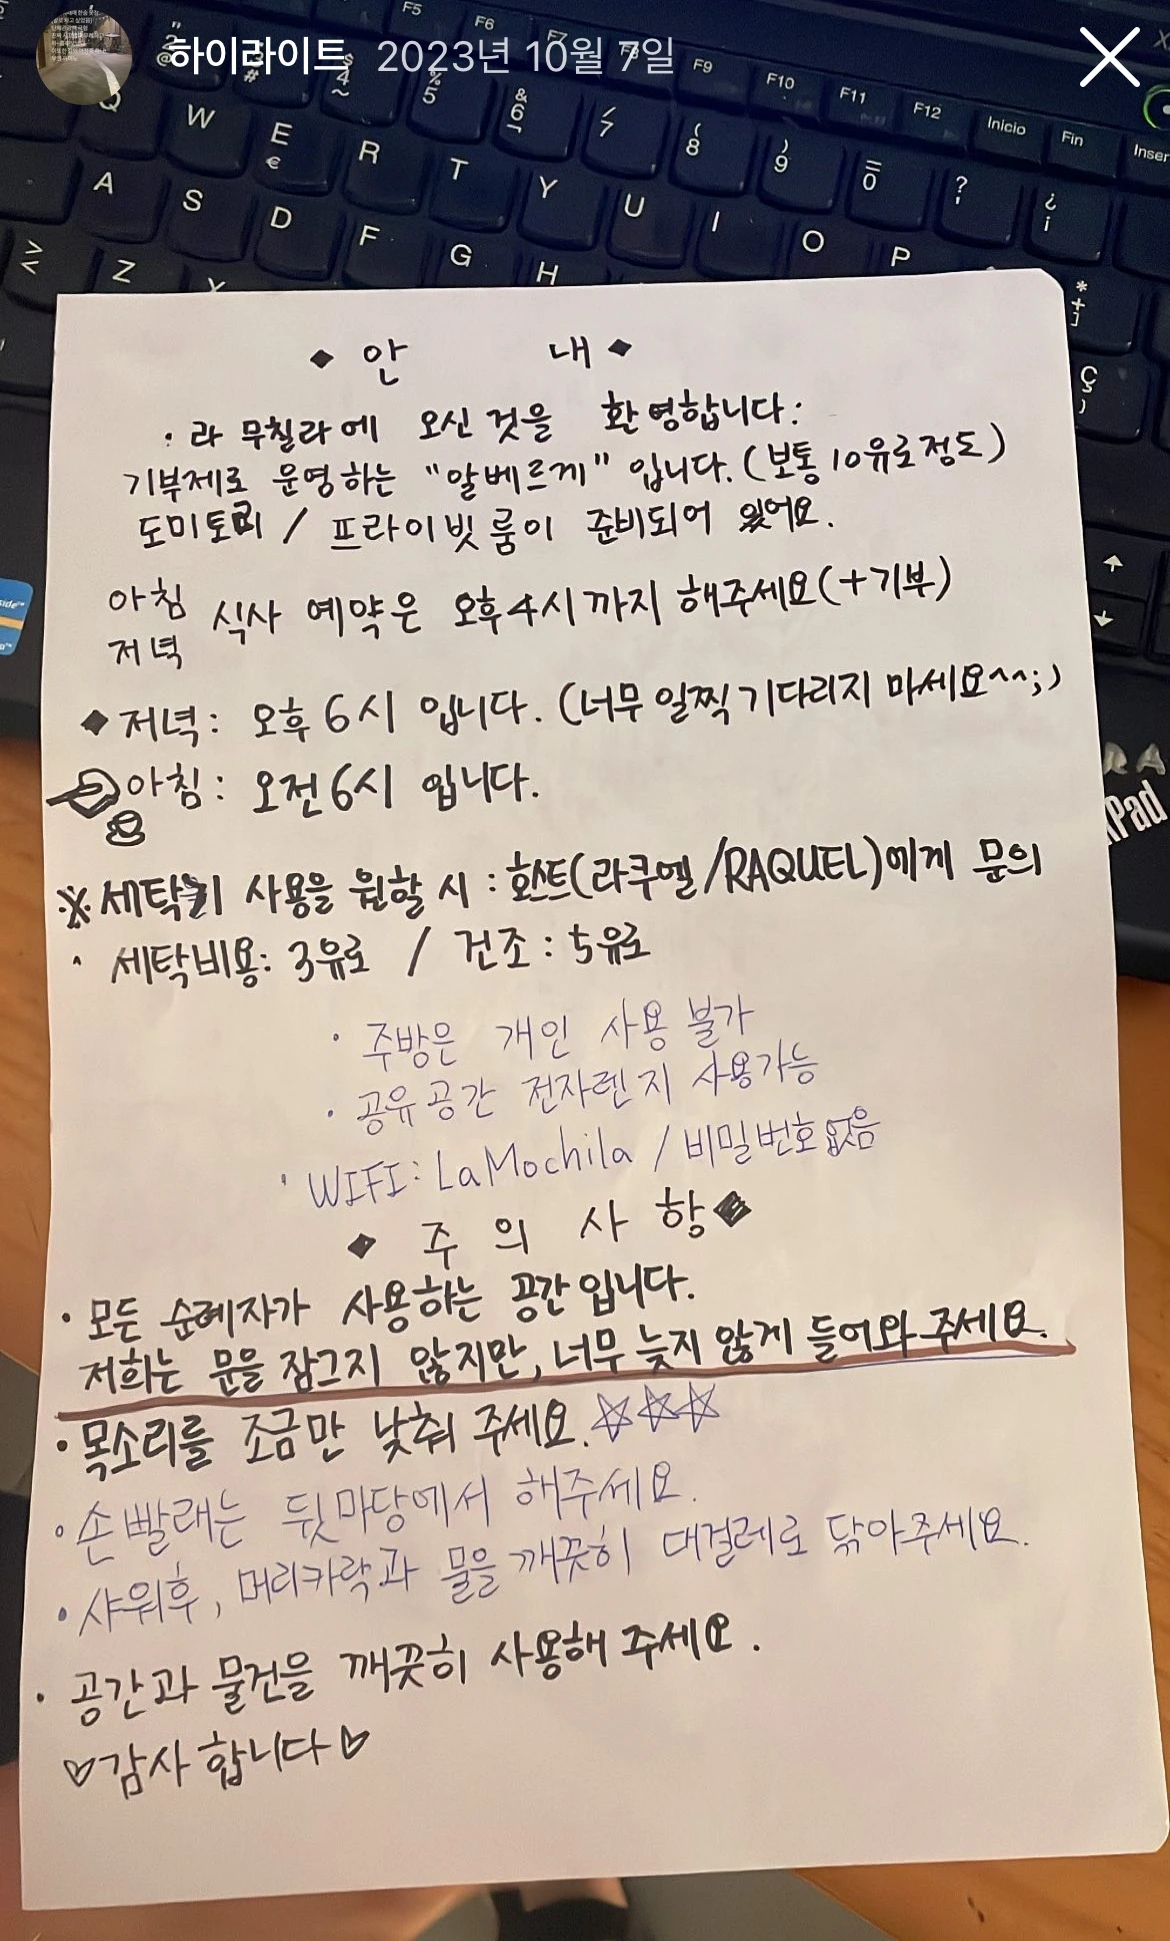 하이라이트 2023년 10월 7일
F5 F6 F7 F8 F9 F10 F11 F12 Inicio Fin Inser
Q W E R T Y U I O P
A S D F G H
Z X
◆ 안 내 ◆
· 라 무칠라에 오신 것을 환영합니다:
기부제로 운영하는 "알베르게" 입니다. (보통 10유로정도)
도미토리 / 프라이빗 룸이 준비되어 있어요.
아침
저녁 식사 예약은 오후4시까지 해주세요(+기부)
◆ 저녁: 오후 6시 입니다. (너무 일찍 기다리지 마세요^^;)
아침: 오전6시 입니다.
※ 세탁기 사용을 원할 시 : 호스트(라쿠엘/RAQUEL)에게 문의
· 세탁비용: 3유로 / 건조: 5유로
· 주방은 개인 사용 불가
· 공유공간 전자렌지 사용가능
· WIFI: LaMochila / 비밀번호 없음
◆ 주 의 사 항 ◆
· 모든 순례자가 사용하는 공간입니다.
저희는 문을 잠그지 않지만, 너무 늦지 않게 들어와 주세요.
· 목소리를 조금만 낮춰 주세요. ☆☆☆
· 손빨래는 뒷마당에서 해주세요.
· 샤워후, 머리카락과 물을 깨끗히 대걸레로 닦아주세요.
· 공간과 물건을 깨끗히 사용해 주세요.
♡감사합니다♡